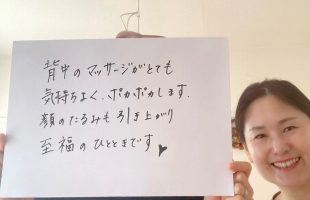 背中のマッサージがとても
気持ちよく、ポカポカします。
顔のたるみも引き上がり
至福のひとときです♥